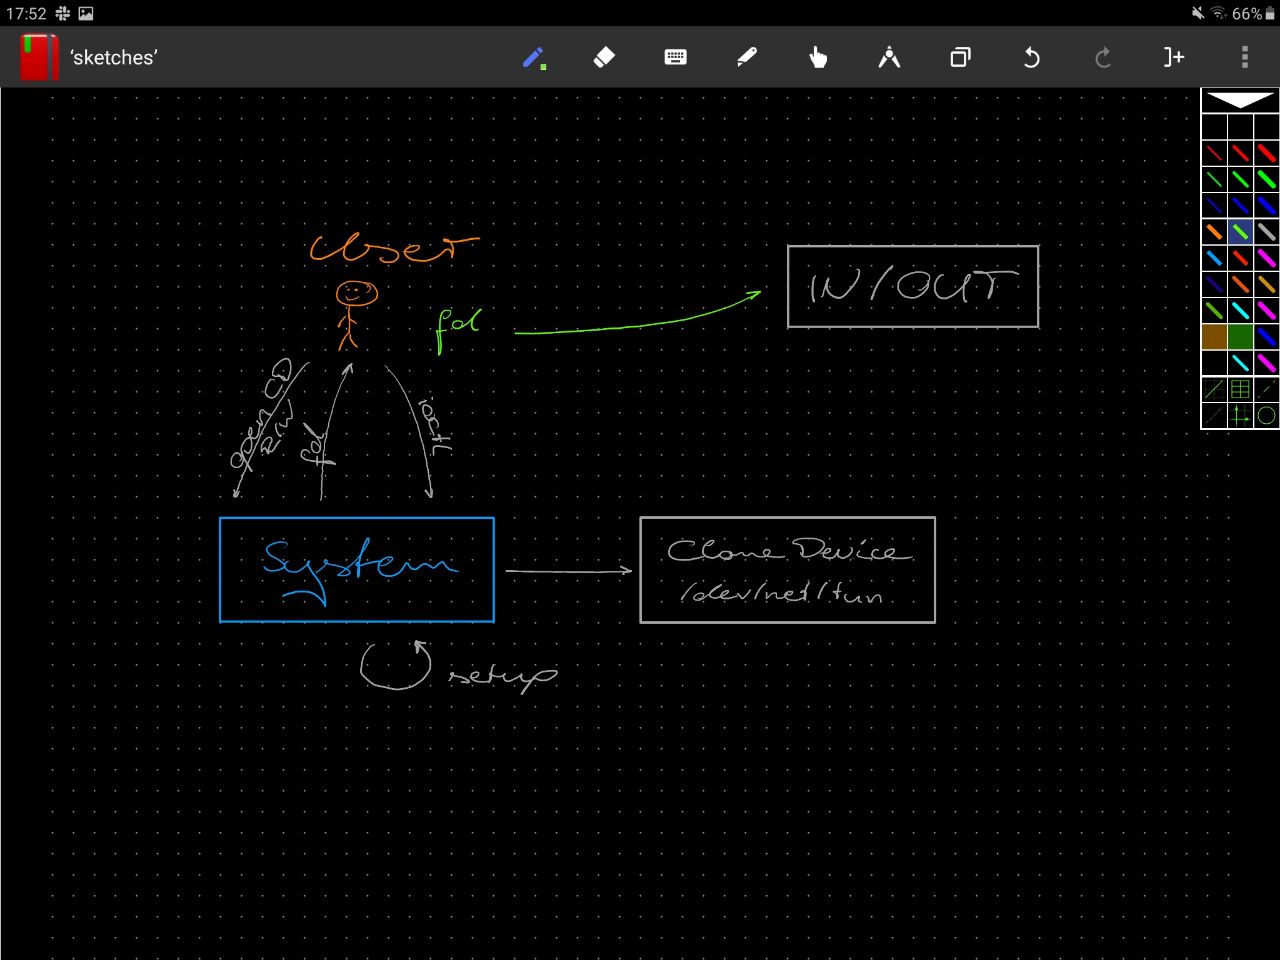 17:52
66%
'sketches'
Closer
IN/OUT
fd
open CD
R/W
fd
ioctl
System
Clone Device
/dev/net/tun
setup